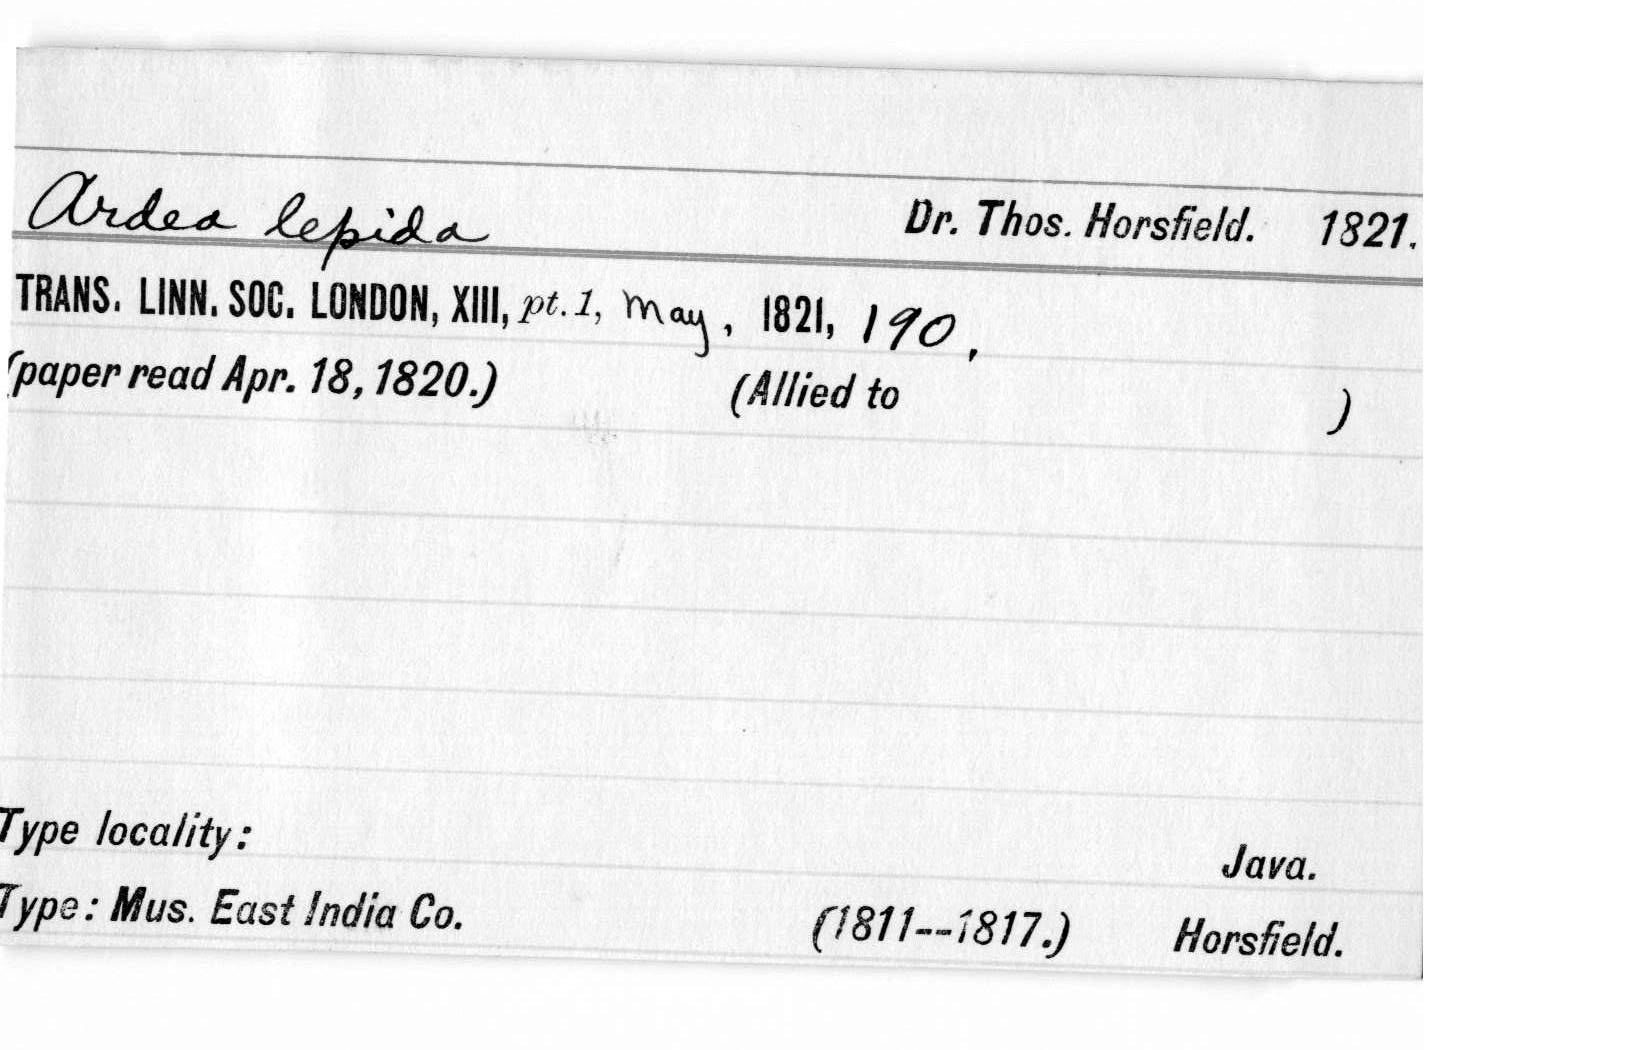 Ardea lepida Dr. Thos. Horsfield. 1821.
TRANS. LINN. SOC. LONDON, XIII, pt. 1, May, 1821, 190,
(paper read Apr. 18, 1820.) (Allied to )
Type locality: Java.
Type: Mus. East India Co. (1811--1817.) Horsfield.